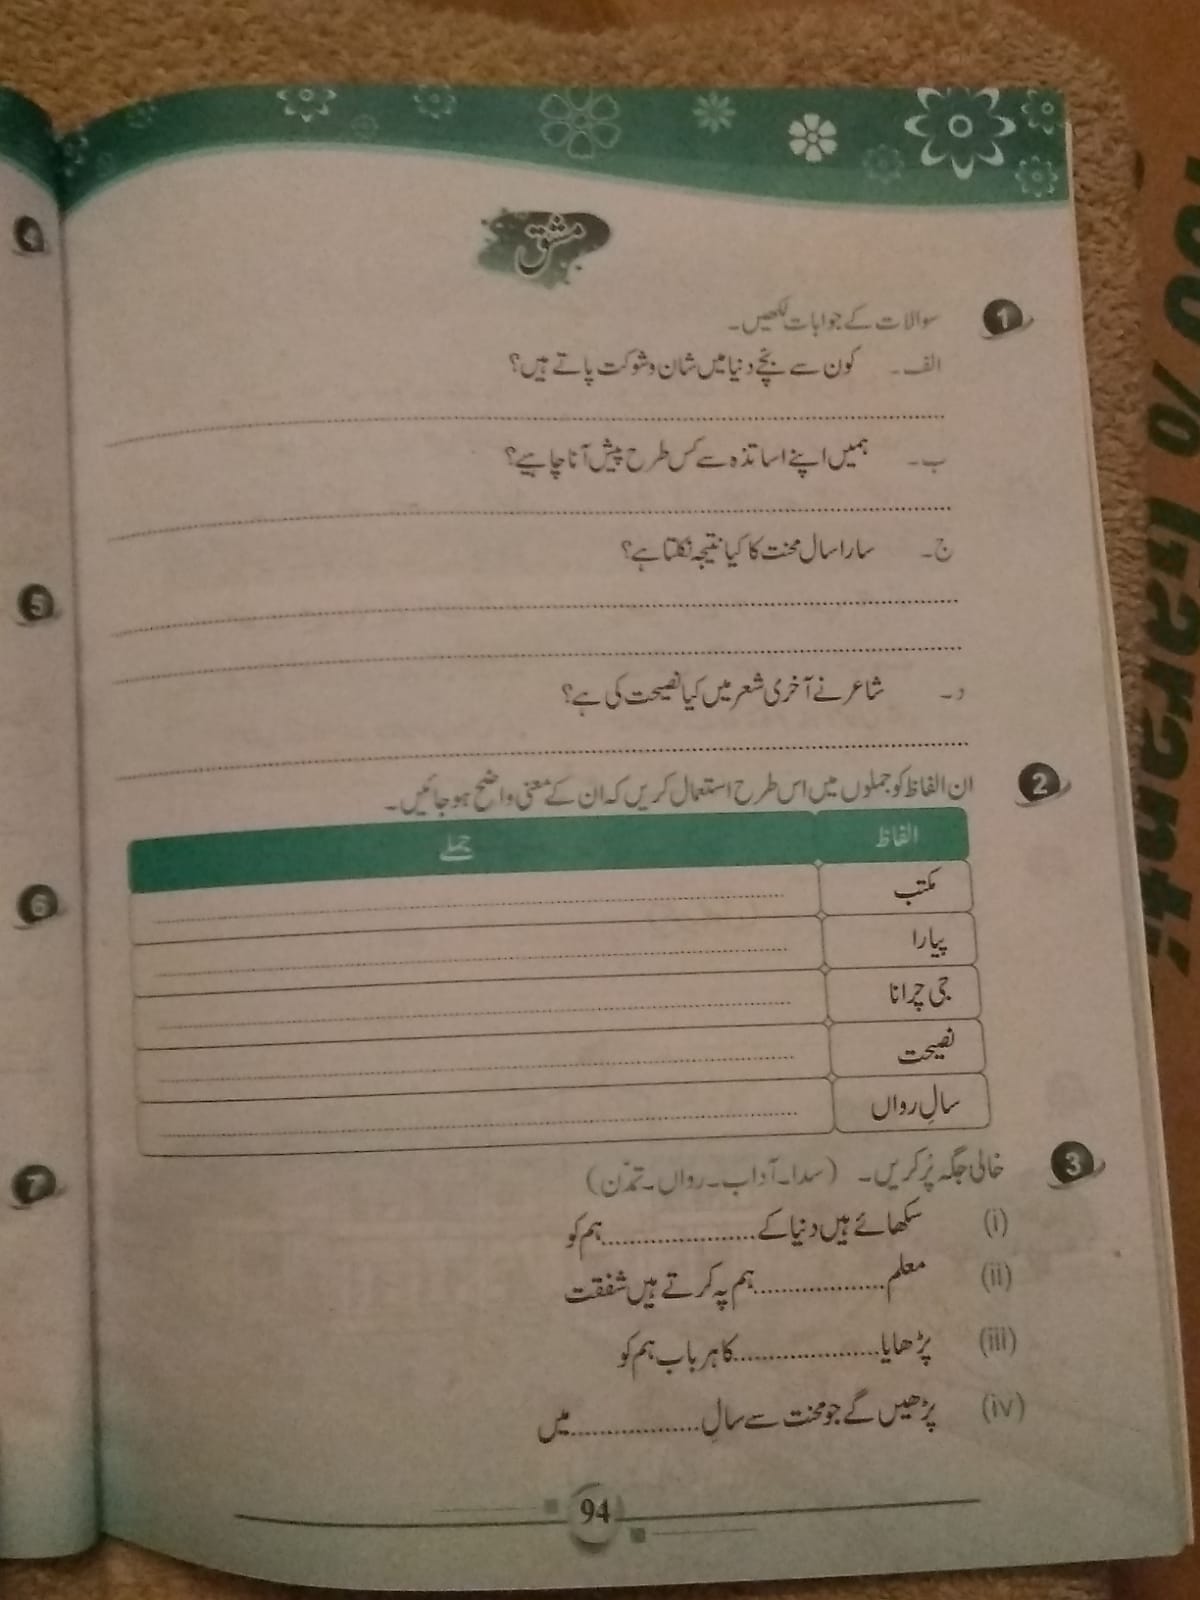 مشق
1 سوالات کے جوابات لکھیں۔
الف۔ کون سے بچّے دنیا میں شان و شوکت پاتے ہیں؟
ب۔ ہمیں اپنے اساتذہ سے کس طرح پیش آنا چاہیے؟
ج۔ سارا سال محنت کا کیا نتیجہ نکلتا ہے؟
د۔ شاعر نے آخری شعر میں کیا نصیحت کی ہے؟
2 ان الفاظ کو جملوں میں اس طرح استعمال کریں کہ ان کے معنی واضح ہو جائیں۔
الفاظ جملے
مکتب
پیارا
جی چرانا
نصیحت
سالِ رواں
3 خالی جگہ پُر کریں۔ (سدا۔ آداب۔ رواں۔ تمدّن)
(i) سکھائے ہیں دنیا کے ...................... ہم کو
(ii) معلم ................... ہم پہ کرتے ہیں شفقت
(iii) پڑھایا ..................... کا ہر باب ہم کو
(iv) پڑھیں گے جو محنت سے سالِ ................... میں
94
4
5
6
7
100% Garanti